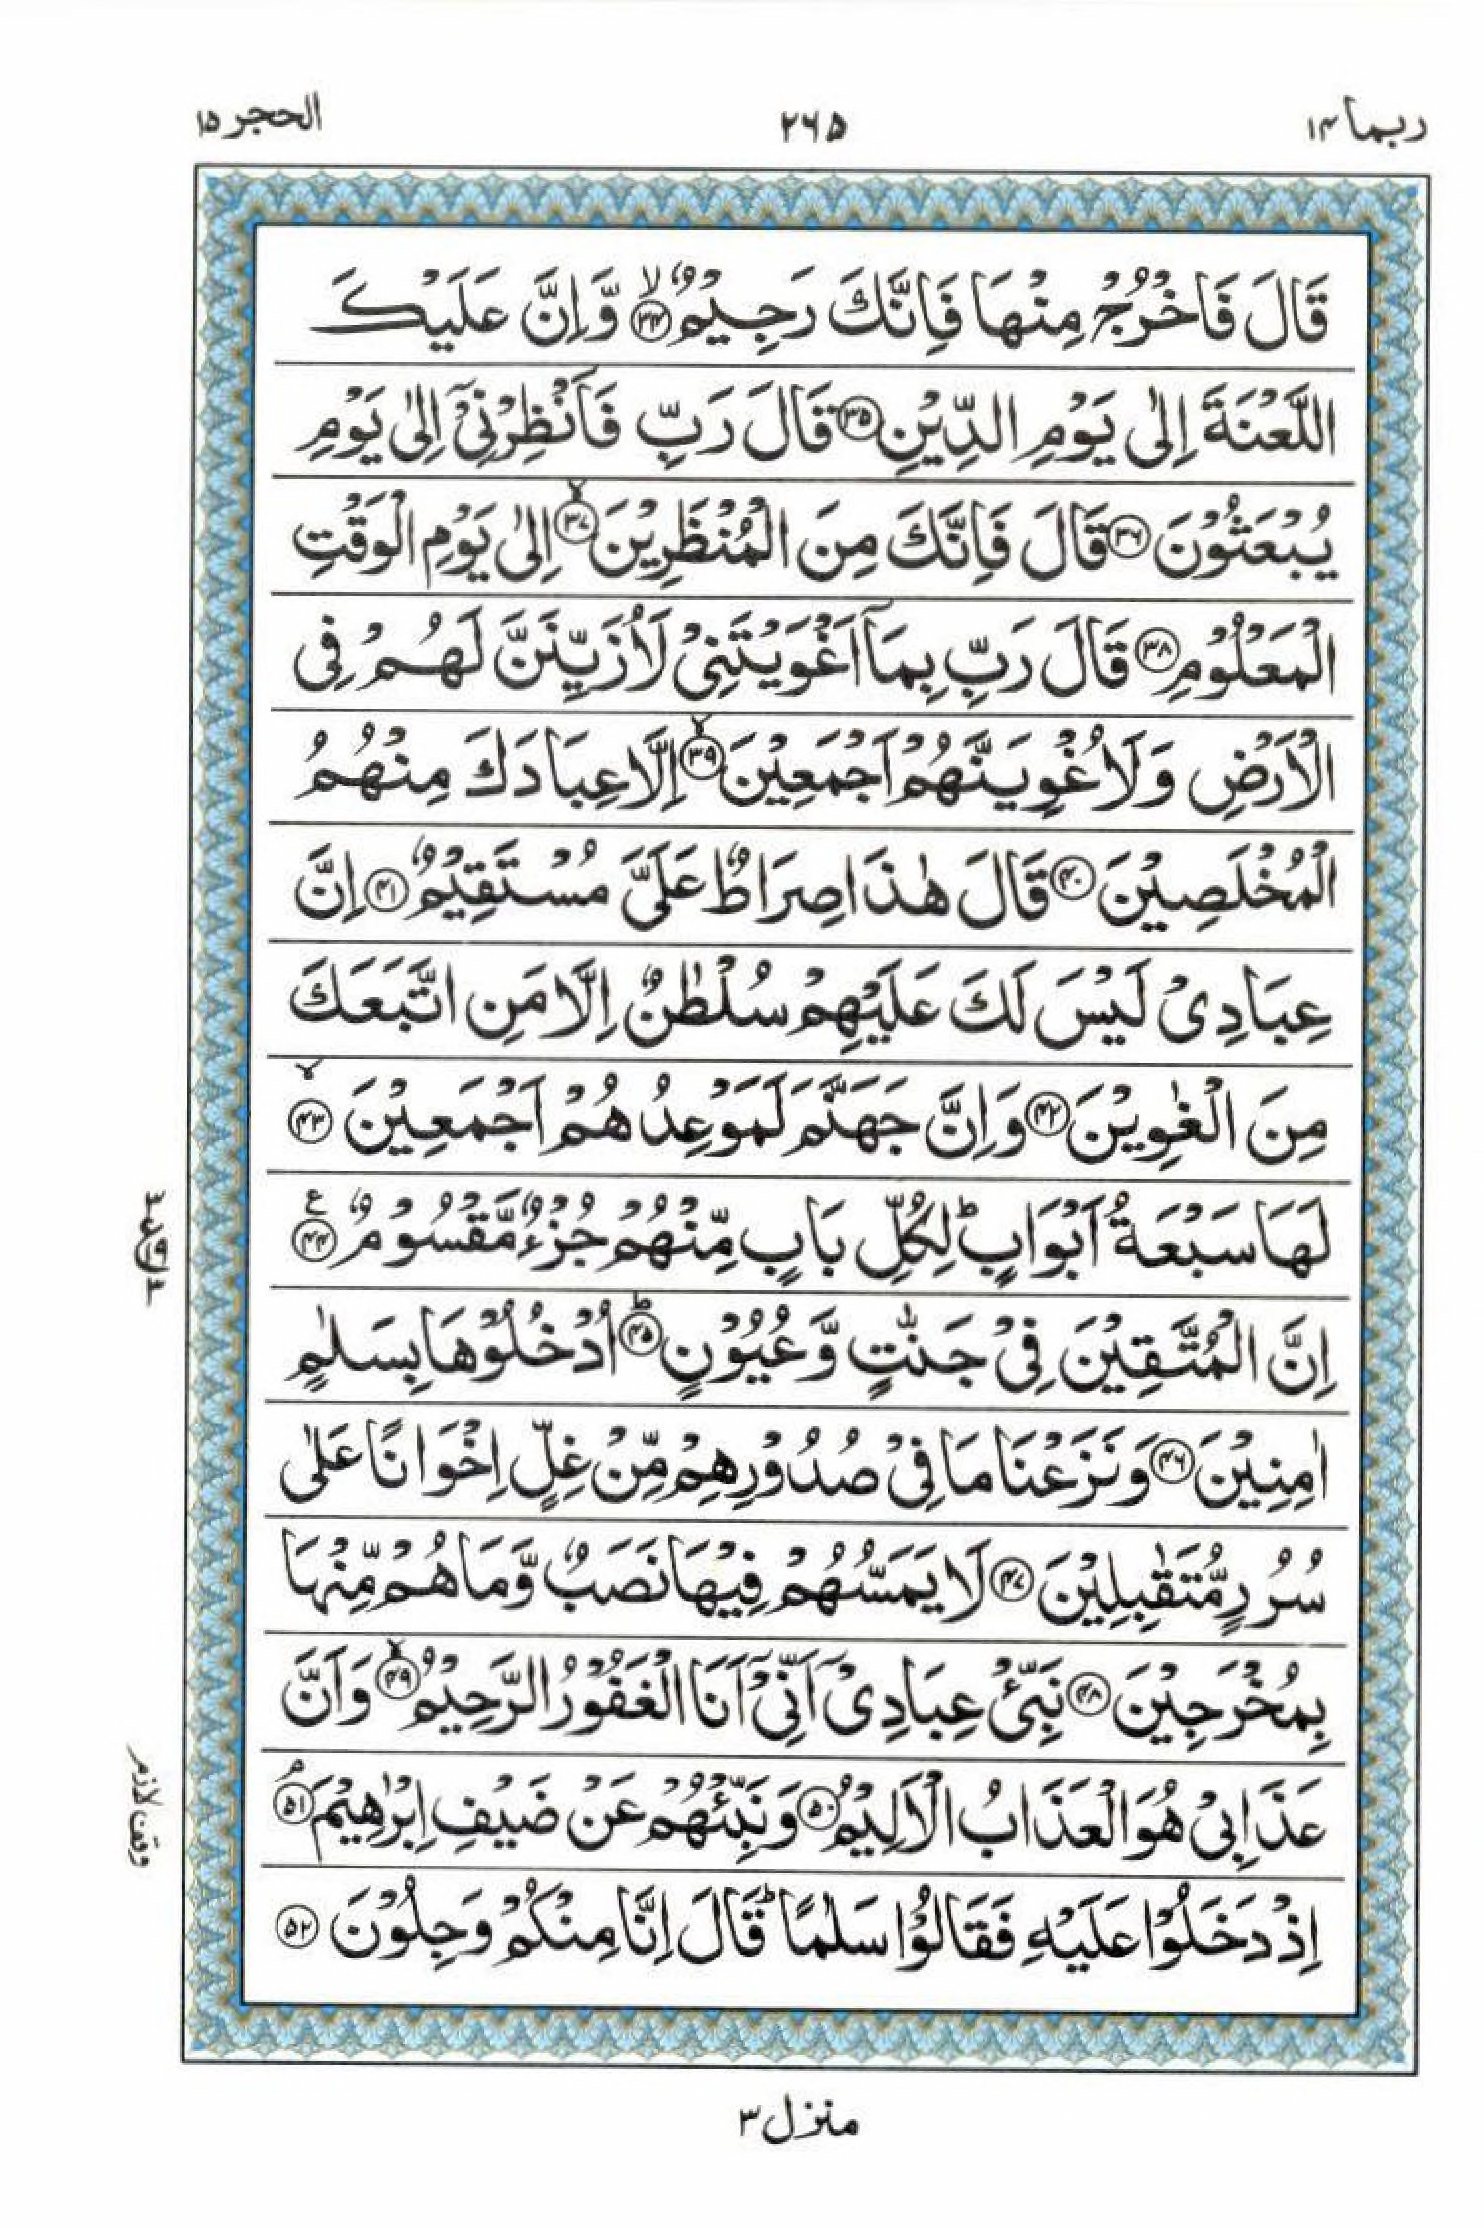 ربما ۱۴
۲۶۵
الحجر ۱۵
قَالَ فَاخْرُجْ مِنْهَا فَاِنَّكَ رَجِيْمٌ ۙ﴿۳۴﴾ وَّاِنَّ عَلَيْكَ
اللَّعْنَةَ اِلٰى يَوْمِ الدِّيْنِ ﴿۳۵﴾ قَالَ رَبِّ فَاَنْظِرْنِيْۤ اِلٰى يَوْمِ
يُبْعَثُوْنَ ﴿۳۶﴾ قَالَ فَاِنَّكَ مِنَ الْمُنْظَرِيْنَ ۙ﴿۳۷﴾ اِلٰى يَوْمِ الْوَقْتِ
الْمَعْلُوْمِ ﴿۳۸﴾ قَالَ رَبِّ بِمَاۤ اَغْوَيْتَنِيْ لَاُزَيِّنَنَّ لَهُمْ فِى
الْاَرْضِ وَلَاُغْوِيَنَّهُمْ اَجْمَعِيْنَ ۙ﴿۳۹﴾ اِلَّا عِبَادَكَ مِنْهُمُ
الْمُخْلَصِيْنَ ﴿۴۰﴾ قَالَ هٰذَا صِرَاطٌ عَلَيَّ مُسْتَقِيْمٌ ﴿۴۱﴾ اِنَّ
عِبَادِيْ لَيْسَ لَكَ عَلَيْهِمْ سُلْطٰنٌ اِلَّا مَنِ اتَّبَعَكَ
مِنَ الْغٰوِيْنَ ﴿۴۲﴾ وَاِنَّ جَهَنَّمَ لَمَوْعِدُهُمْ اَجْمَعِيْنَ ۙ﴿۴۳﴾
لَهَا سَبْعَةُ اَبْوَابٍ ؕ لِكُلِّ بَابٍ مِّنْهُمْ جُزْءٌ مَّقْسُوْمٌ ﴿۴۴﴾ ع
اِنَّ الْمُتَّقِيْنَ فِيْ جَنّٰتٍ وَّعُيُوْنٍ ؕ﴿۴۵﴾ اُدْخُلُوْهَا بِسَلٰمٍ
اٰمِنِيْنَ ﴿۴۶﴾ وَنَزَعْنَا مَا فِيْ صُدُوْرِهِمْ مِّنْ غِلٍّ اِخْوَانًا عَلٰى
سُرُرٍ مُّتَقٰبِلِيْنَ ﴿۴۷﴾ لَا يَمَسُّهُمْ فِيْهَا نَصَبٌ وَّمَا هُمْ مِّنْهَا
بِمُخْرَجِيْنَ ﴿۴۸﴾ نَبِّئْ عِبَادِيْۤ اَنِّيْۤ اَنَا الْغَفُوْرُ الرَّحِيْمُ ۙ﴿۴۹﴾ وَاَنَّ
عَذَابِيْ هُوَ الْعَذَابُ الْاَلِيْمُ ﴿۵۰﴾ وَنَبِّئْهُمْ عَنْ ضَيْفِ اِبْرٰهِيْمَ ۘ﴿۵۱﴾
وقف لازم
اِذْ دَخَلُوْا عَلَيْهِ فَقَالُوْا سَلٰمًا ؕ قَالَ اِنَّا مِنْكُمْ وَجِلُوْنَ ﴿۵۲﴾
منزل ۳